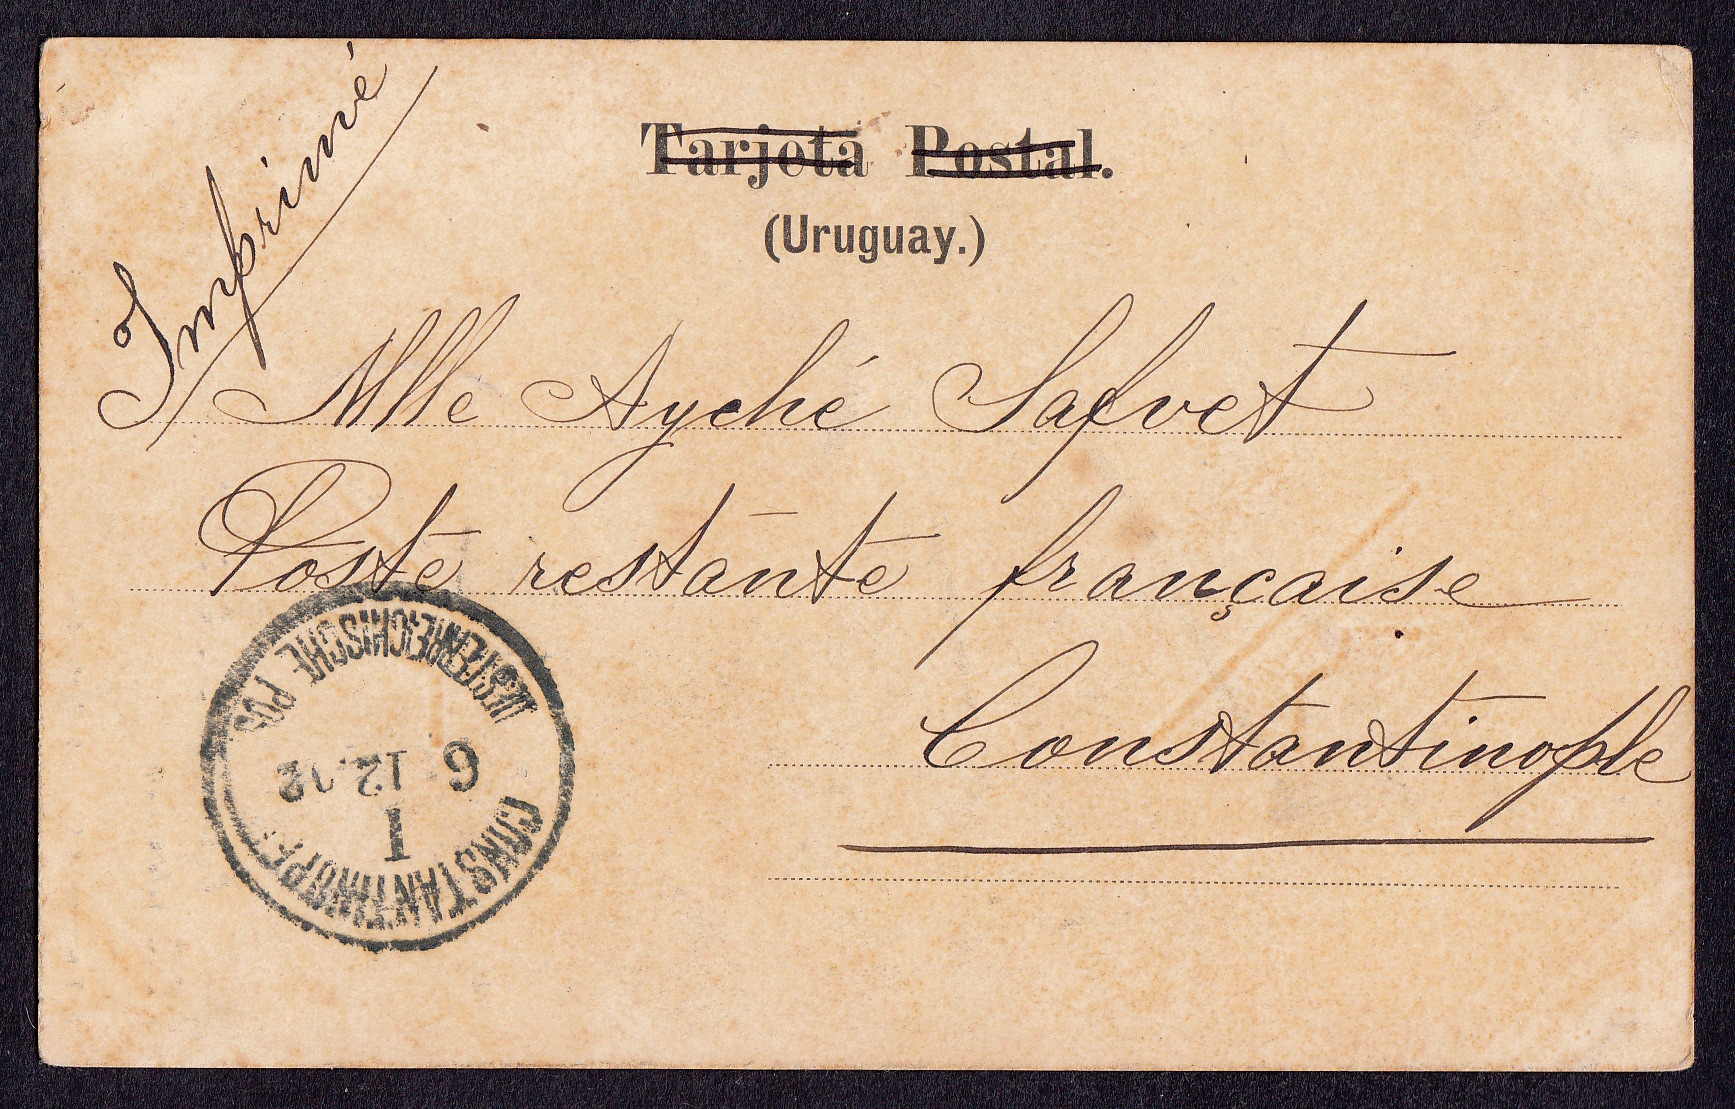 Imprimé
Tarjeta Postal.
(Uruguay.)
Mlle Ayché Safvet
Poste restante française
Constantinople
ÖSTERREICHISCHE POST
6 12 02
I
CONSTANTINOPEL